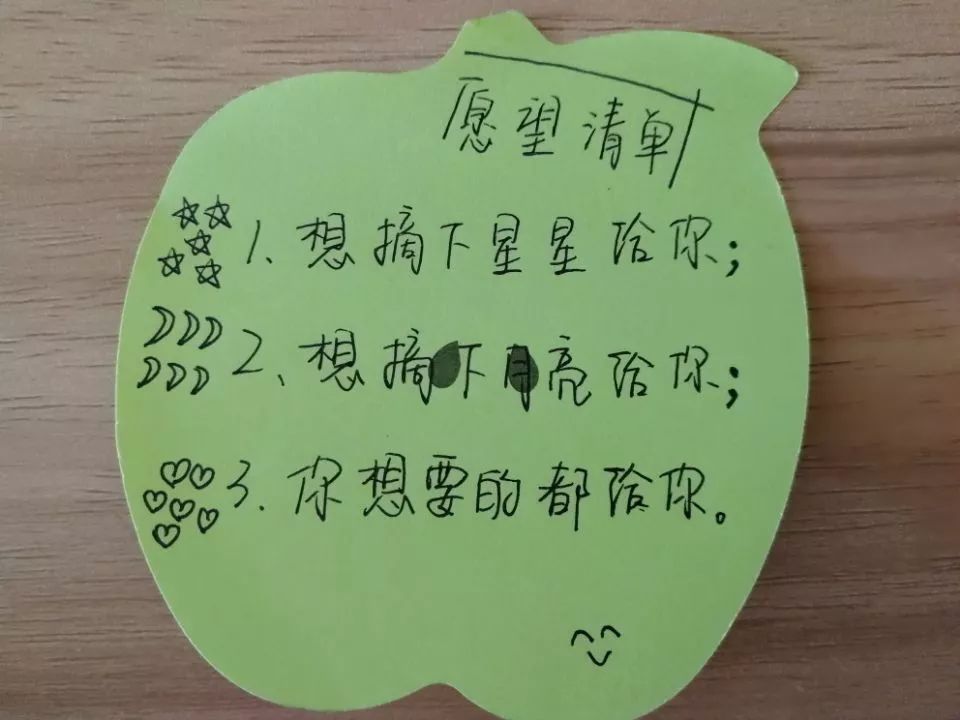 愿望清单
1.想摘下星星给你；
2、想摘下月亮给你；
3.你想要的都给你。